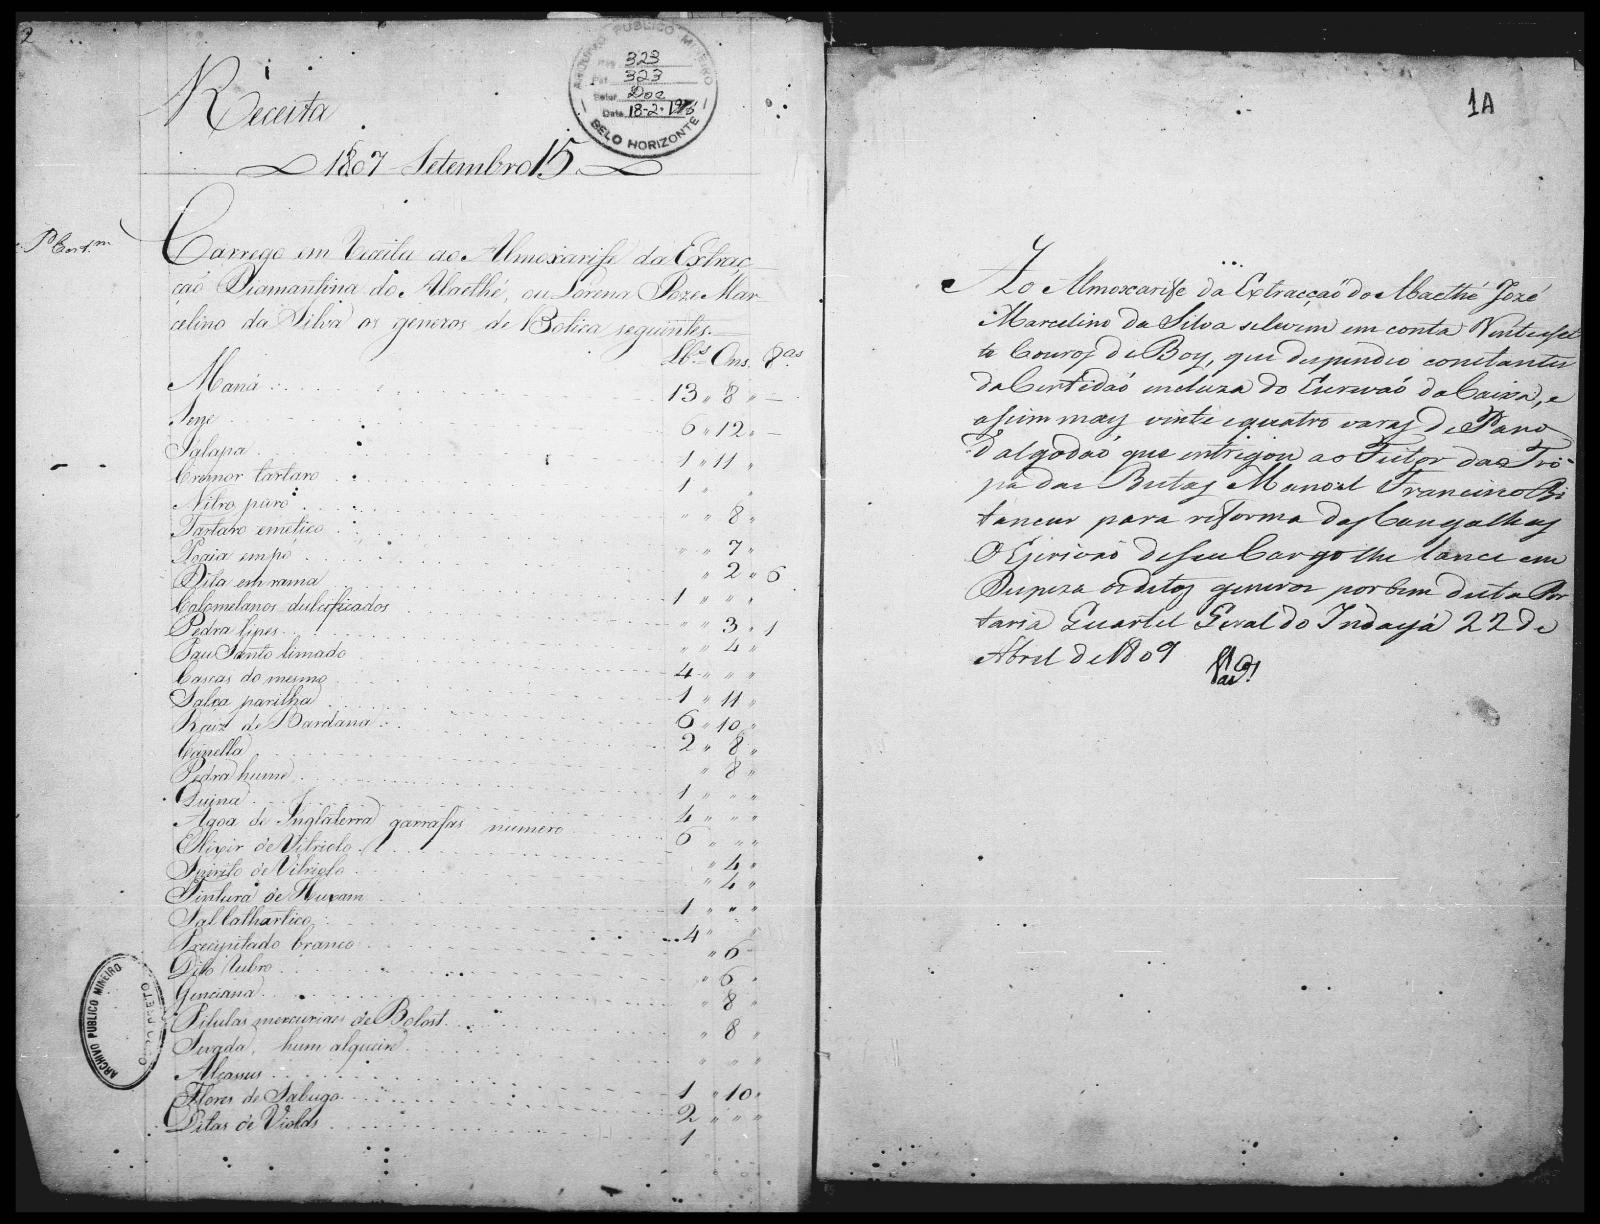 2
ARCHIVO PUBLICO MINEIRO
323
323
Setor Doc
Data 18-2-
BELO HORIZONTE
Receita
1807 Setembro 15
Carrego em Receita ao Almoxarife da Extrac
caõ Diamantina do Abaethé, ou Lorena Joze Mar
celino da Silva os generos de Botica seguintes.
Lb.s Ons. 8.as
Maná 13 " 8 " —
Sene 6 " 12 " —
Jalapa 1 " 11 "
Cremor tartaro 1 " "
Nitro puro " " 8 "
Tartaro emetico " " 7 "
Poaia em po " 2 " 6
Dita em rama 1 " " "
Calomelanos dulcificados " " 3 " 1
Pedra lipes " " 4 "
Pau Santo limado 4 " " "
Cascas do mesmo 1 " 11 "
Salsa parilha 6 " 10 "
Raiz de Bardana 2 " 8 "
Canella " 8 "
Pedra hume 1 " " "
Quina 4 " " "
Agoa de Inglaterra garrafas numero 6 " " "
Elixir de Vitriolo " 4 "
Spirito de Vitriolo " 4 "
Tintura de Huxam 1 " " "
Sal Cathartico 4 " "
Precipitado branco " 6
Dito Rubro " 6 "
Genciana " 8 "
Pilulas mercuriaes de Bolost " 8 "
Sevada, hum alqueire " " "
Alcassus 1 " 10 "
Flores de Sabugo 2 " " "
Ditas de Violas 1
ARCHIVO PUBLICO MINEIRO
OURO PRETO
1A
Ao Almoxarife da Extracçaõ do Abaethé Jozé
Marcelino da Silva selevem em conta Vinte eset
te Couros de Boy, que despendeo constantes
da Certidaõ incluza do Escrivaõ da Caixa, e
assim mais vinte e quatro varas de Pano
d'algodaõ que entregou ao Feitor das Tro-
pa das Bestas Manoel Francisco Bi
tancur para reforma das Cangalhas
O Escrivaõ deseu Cargo lhe lance em
Despeza os ditos generos por bem desta Por
taria Quartel Geral do Indayá 22 de
Abril de 1809